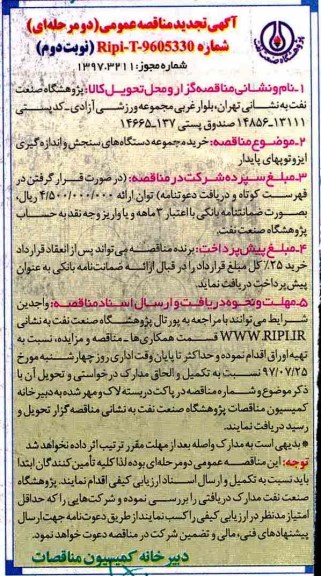 آگهی تجدید مناقصه عمومی (دو مرحله‌ای)
شماره Ripi-T-9605330 (نوبت دوم)
شماره مجوز: ۱۳۹۷.۳۲۱۱
پژوهشگاه صنعت نفت
۱-نام و نشانی مناقصه گزار و محل تحویل کالا: پژوهشگاه صنعت
نفت به نشانی تهران، بلوار غربی مجموعه ورزشی آزادی-کدپستی
۱۳۱۱۱-۱۴۸۵۶ صندوق پستی ۱۳۷-۱۴۶۶۵
۲-موضوع مناقصه: خرید مجموعه دستگاه‌های سنجش و اندازه گیری
ایزوتوپهای پایدار
۳-مبلغ سپرده شرکت در مناقصه: (در صورت قرار گرفتن در
فهرست کوتاه و دریافت دعوتنامه) توان ارائه ۴/۵۰۰/۰۰۰/۰۰۰ ریال،
بصورت ضمانتنامه بانکی با اعتبار ۳ ماهه و یا واریز وجه نقد به حساب
پژوهشگاه صنعت نفت.
۴-مبلغ پیش پرداخت: برنده مناقصه می‌تواند پس از انعقاد قرارداد
خرید ۲۵٪ کل مبلغ قرارداد را در قبال ارائه ضمانت‌نامه بانکی به عنوان
پیش پرداخت دریافت نماید.
۵-مهلت و نحوه دریافت و ارسال اسناد مناقصه: واجدین
شرایط می‌توانند با مراجعه به پورتال پژوهشگاه صنعت نفت به نشانی
WWW.RIPI.IR قسمت همکاری‌ها-مناقصه و مزایده، نسبت به
تهیه اوراق اقدام نموده و حداکثر تا پایان وقت اداری روز چهارشنبه مورخ
۹۷/۰۷/۲۵ نسبت به تکمیل و الحاق مدارک درخواستی و تحویل آن با
ذکر موضوع و شماره مناقصه در پاکت دربسته لاک و مهر شده به دبیرخانه
کمیسیون مناقصات پژوهشگاه صنعت نفت به نشانی مناقصه گزار تحویل و
رسید دریافت نمایند.
* بدیهی است به مدارک واصله بعد از مهلت مقرر ترتیب اثر داده نخواهد شد.
توجه: این مناقصه عمومی دو مرحله‌ای بوده لذا کلیه تأمین کنندگان ابتدا
باید نسبت به تکمیل و ارسال اسناد ارزیابی کیفی اقدام نمایند. پژوهشگاه
صنعت نفت مدارک دریافتی را بررسی نموده و شرکت‌هایی را که حداقل
امتیاز مدنظر در ارزیابی کیفی را کسب نمایند از طریق دعوت‌نامه جهت ارسال
پیشنهادهای فنی، مالی و تضمین شرکت در مناقصه دعوت خواهد نمود.
دبیرخانه کمیسیون مناقصات